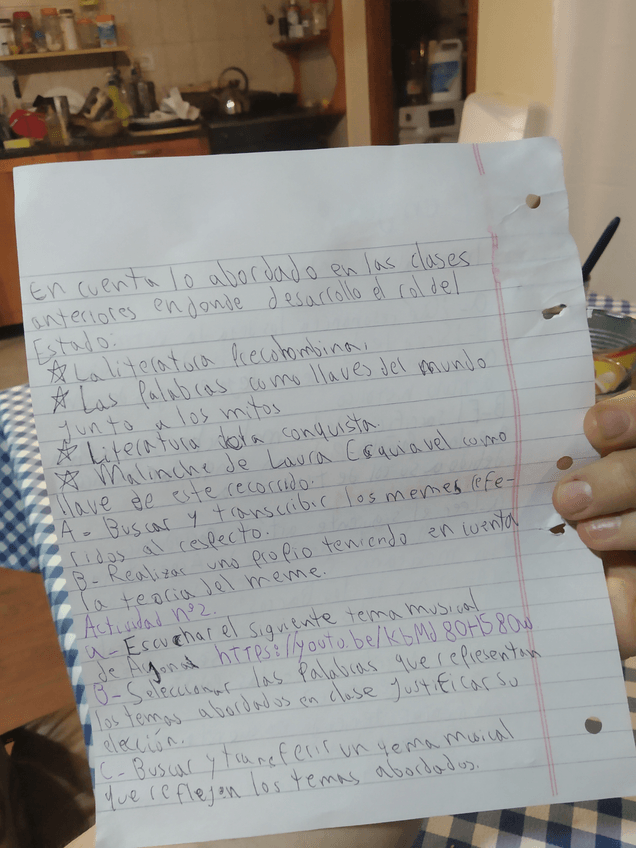 En cuenta lo abordado en las clases
anteriores en donde desarrollo el rol del
Estado:
☆ La literatura Precolombina,
☆ Las Palabras como llaves del mundo
junto a los mitos
☆ Literatura de la conquista.
☆ Malinche de Laura Esquiavel como
llave de este recorrido.
A- Buscar y transcribir los memes refe-
ridos al respecto.
B- Realizar uno propio teniendo en cuenta
la teoria del meme.
Actividad n°2.
a- Escuchar el siguiente tema musical
de
B- Seleccionar las Palabras que representan
los temas abordados en clase justificar su
elección.
C- Buscar y transferir un tema musical
que reflejen los temas abordados.